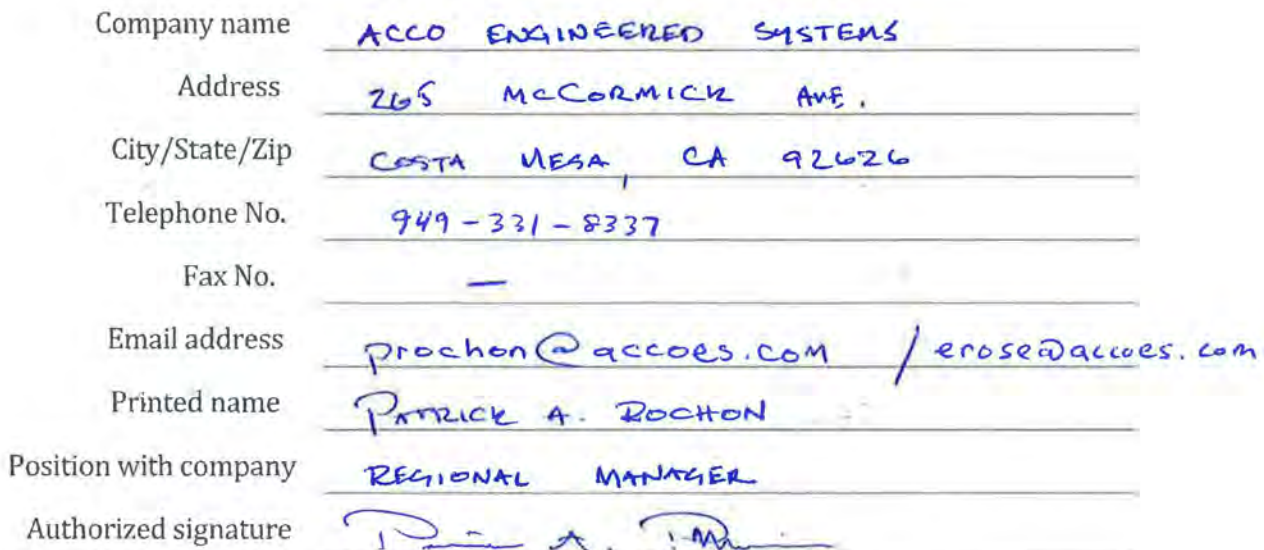 Company name ACCO ENGINEERED SYSTEMS
Address 265 McCORMICK AVE.
City/State/Zip COSTA MESA, CA 92626
Telephone No. 949-331-8337
Fax No. —
Email address prochon@accoes.com / erose@accoes.com
Printed name PATRICK A. ROCHON
Position with company REGIONAL MANAGER
Authorized signature